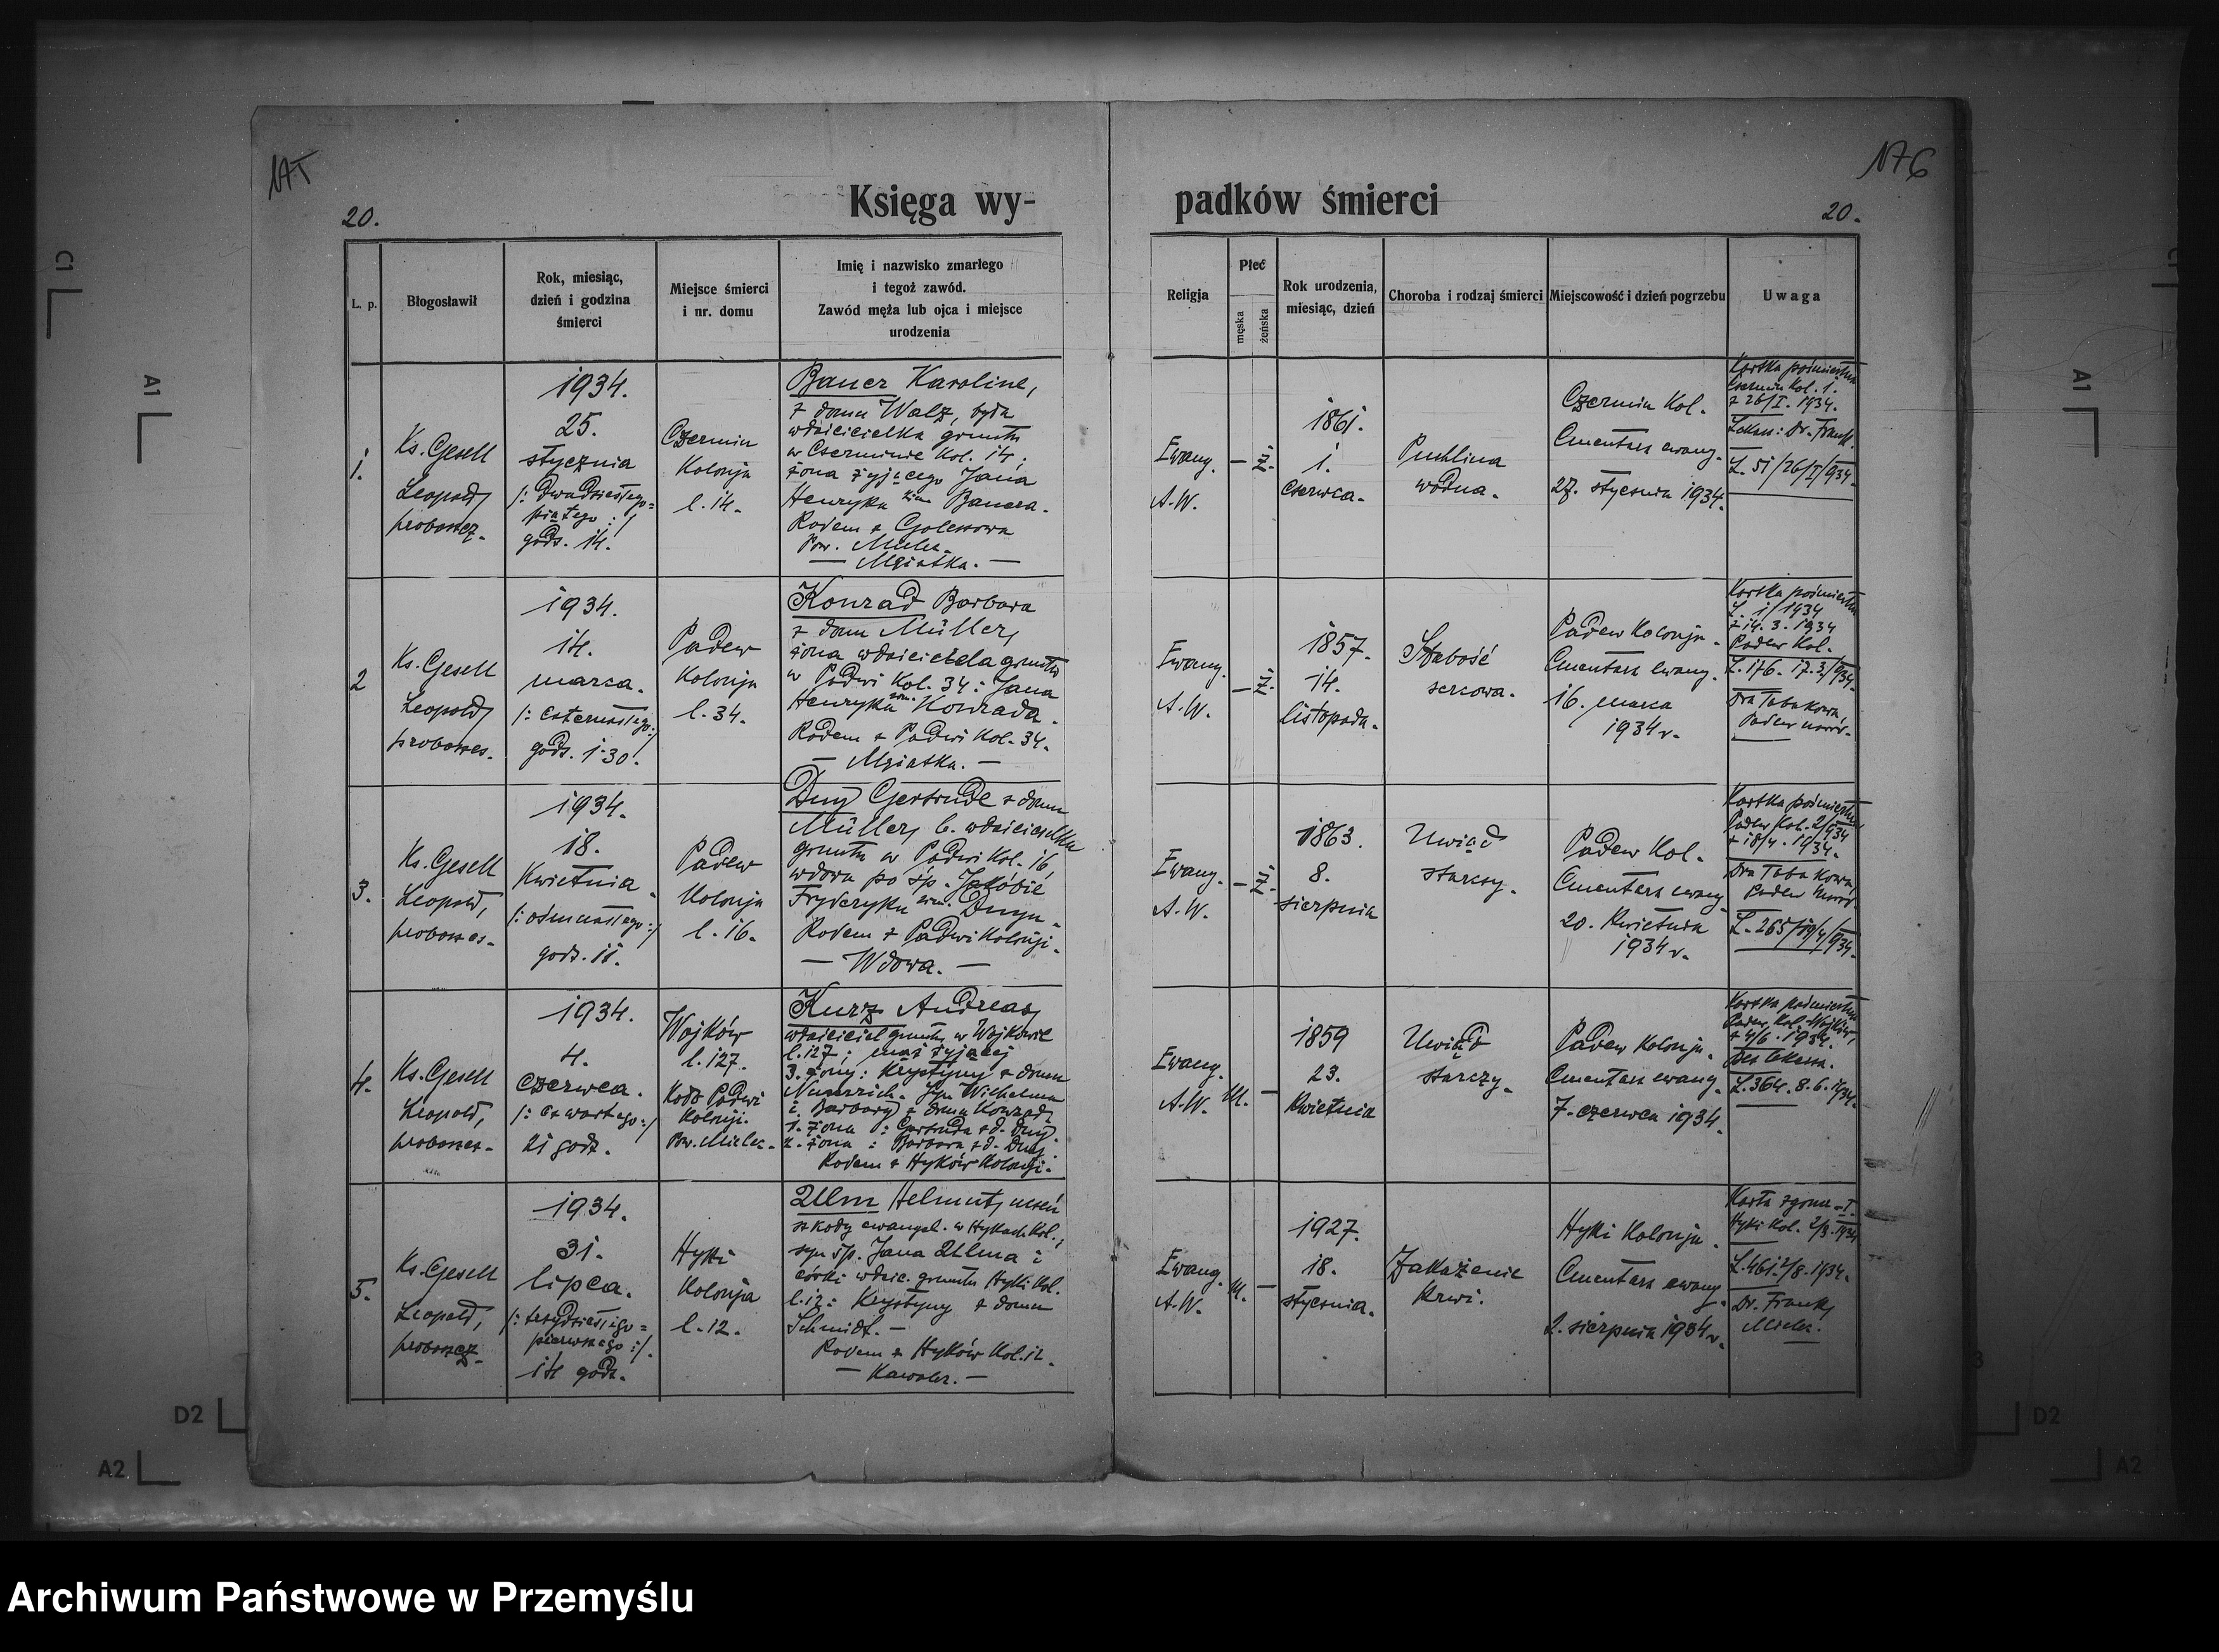 C1
A1
20.
Księga wy-
L. p.
Błogosławił
Rok, miesiąc,
dzień i godzina
śmierci
Miejsce śmierci
i nr. domu
Imię i nazwisko zmarłego
i tegoż zawód.
Zawód męża lub ojca i miejsce
urodzenia
1.
Ks. Gesell
Leopold,
proboszcz.
1934.
25.
stycznia
/: dwudziestego-
piątego :/
godz. 14.
Czermin
Kolonja
l. 14.
Bauer Karoline,
z domu Walz, była
właścicielka gruntu
w Czerminie Kol. 14,
żona żyjącego Jana
Henryka Bauera.
Rodem z Goleszowa
Pow. Mielec.
— Mężatka. —
2
Ks. Gesell
Leopold,
proboszcz.
1934.
14.
marca.
/: czternastego :/
godz. 1·30.
Padew
Kolonja
l. 34.
Konrad Barbara
z domu Müller,
żona właściciela gruntu
w Padwi Kol. 34: Jana
Henryka Konrada.
Rodem z Padwi Kol. 34.
— Mężatka. —
3.
Ks. Gesell
Leopold,
proboszcz.
1934.
18.
Kwietnia.
/: ośmnastego :/
godz. 11.
Padew
Kolonja
l. 16.
Duy Gertrude z domu
Müller, b. właścicielka
gruntu w Padwi Kol. 16,
wdowa po śp. Jakóbie
Fryderyku Duyu.
Rodem z Padwi Kolonji.
— Wdowa. —
4.
Ks. Gesell
Leopold,
proboszcz.
1934.
4.
czerwca.
/: czwartego :/
21 godz.
Wojków
l. 127.
Koło Padwi
Kolonji.
Pow. Mielec.
Kurz Andreas,
właściciel gruntu w Wojkowie
l. 127; mąż żyjącej
3. żony: Krystyny z domu
Syn Wilhelma
i Barbary z domu Konrad,
1. żona: Gertruda z d. Duy.
2. żona: Barbara z d. Duy.
Rodem z Hyków Kolonji.
5.
Ks. Gesell
Leopold,
proboszcz.
1934.
31.
lipca.
/: trzydziestego-
pierwszego :/.
14 godz.
Hyki
Kolonja
l. 12.
Ulm Helmut, uczeń
szkoły ewangel. w Hykach Kol.,
syn śp. Jana Ulma i
córki właśc. gruntu Hyki Kol.
l. 12: Krystyny z domu
Schmidt. —
Rodem z Hyków Kol. 12.
— Kawaler. —
D2
A2
padków śmierci
20.
Religja
Płeć
męska
żeńska
Rok urodzenia,
miesiąc, dzień
Choroba i rodzaj śmierci
Miejscowość i dzień pogrzebu
Uwaga
Ewang.
A.W.
— ż.
1861.
1.
czerwca.
Puchlina
wodna.
Czermin Kol.
Cmentarz ewang.
27. stycznia 1934.
Kartka pośmiertna
Czermin Kol. 1.
z 26/I. 1934.
Lekarz: Dr. Frank.
L. 51/26/I/934.
Ewang.
A.W.
— ż.
1857.
14.
listopada.
Słabość
sercowa.
Padew Kolonja.
Cmentarz ewang.
16. marca
1934 r.
Kartka pośmiertna
L. 1/1934
z 14. 3. 1934
Padew Kol.
L. 176. 17.3/934.
Padew narod.
Ewang.
A.W.
— ż.
1863.
8.
sierpnia
Uwiąd
starczy.
Padew Kol.
Cmentarz ewang.
20. Kwietnia
1934 r.
Kartka pośmiertna
Padew Kol. 2/934
z 18/4. 1934.
Padew Narod.
L. 265/19/4/934.
Ewang.
A.W.
M. —
1859
23.
Kwietnia
Uwiąd
starczy.
Padew Kolonja.
Cmentarz ewang.
7. czerwca 1934.
Kartka pośmiertna
Padew Kol. Wojków,
z 4/6. 1934.
Bez lekarza.
L. 364. 8. 6. 1934.
Ewang.
A.W.
M. —
1927.
18.
stycznia.
Zakażenie
Krwi.
Hyki Kolonja.
Cmentarz ewang.
2. sierpnia 1934 r.
Karta zgonu
Hyki Kol. 2/8. 1934
L. 461. 2/8. 1934.
Dr. Frank,
Mielec.
A1
D2
A2
Archiwum Państwowe w Przemyślu